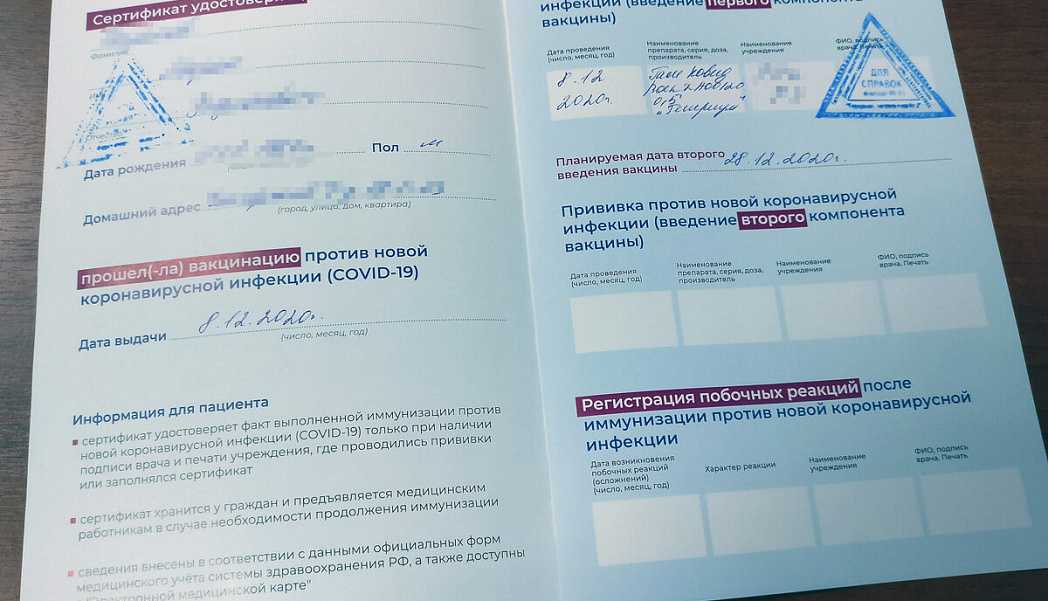 Сертификат удостоверяет
Фамилия
Дата рождения
Пол м
Домашний адрес
(город, улица, дом, квартира)
прошел(-ла) вакцинацию против новой
коронавирусной инфекции (COVID-19)
Дата выдачи 8.12.2020г.
(число, месяц, год)
Информация для пациента
сертификат удостоверяет факт выполненной иммунизации против
новой коронавирусной инфекции (COVID-19) только при наличии
подписи врача и печати учреждения, где проводились прививки
или заполнялся сертификат
сертификат хранится у граждан и предъявляется медицинским
работникам в случае необходимости продолжения иммунизации
сведения внесены в соответствии с данными официальных форм
медицинского учёта системы здравоохранения РФ, а также доступны
в "Электронной медицинской карте"
инфекции (введение первого компонента
вакцины)
Дата проведения
(число, месяц, год)
Наименование
препарата, серия, доза,
производитель
Наименование
учреждения
ФИО, подпись
врача. Печать
8.12
2020г.
Гам Ковид
0,5
ДЛЯ
СПРАВОК
Планируемая дата второго
введения вакцины 28.12.2020г.
Прививка против новой коронавирусной
инфекции (введение второго компонента
вакцины)
Дата проведения
(число, месяц, год)
Наименование
препарата, серия, доза,
производитель
Наименование
учреждения
ФИО, подпись
врача. Печать
Регистрация побочных реакций после
иммунизации против новой коронавирусной
инфекции
Дата возникновения
побочных реакций
(осложнений)
(число, месяц, год)
Характер реакции
Наименование
учреждения
ФИО, подпись
врача. Печать